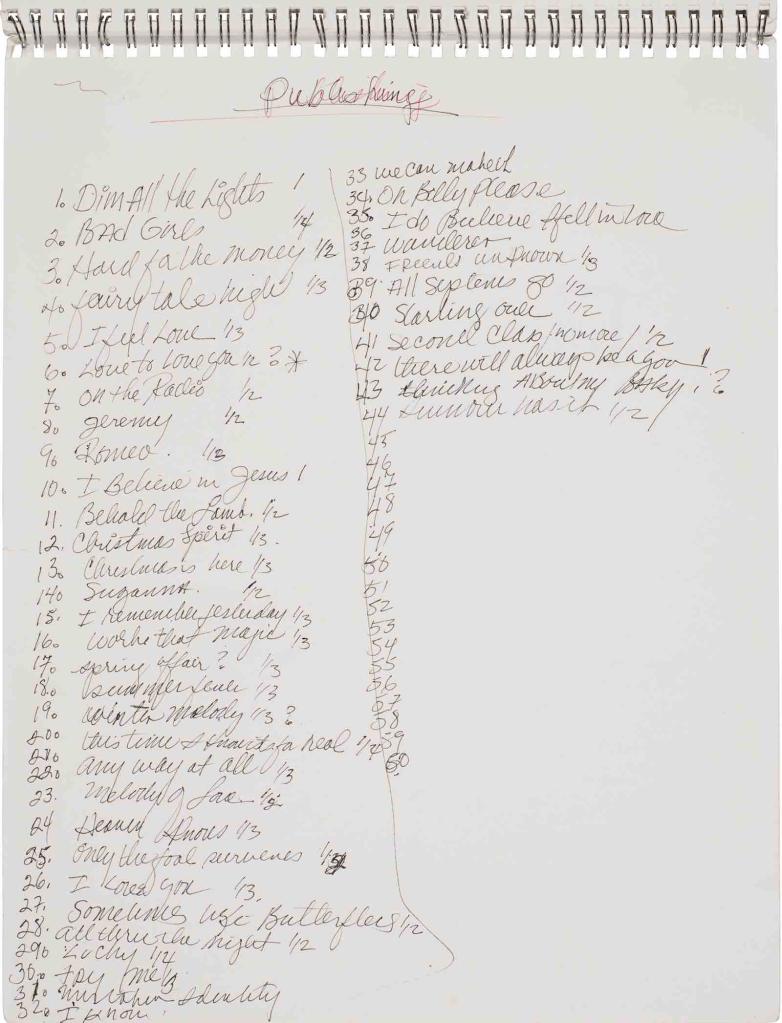 Publishing
1. Dim All the Lights 1
2. BAd Girls 1/4
3. Hard fa the money 1/2
4. fairy tale high 1/3
5. I feel Love 1/3
6. Love to Love you ? *
7. On the Radio 1/2
8. Jeremy 1/2
9. Romeo. 1/3
10. I Believe in Jesus 1
11. Behold the Lamb. 1/2
12. Christmas Spirit 1/3.
13. Christmas is here 1/3
14. Suzanna. 1/2
15. I remember yesterday 1/3
16. work that magic 1/3
17. spring affair? 1/3
18. summer fever 1/3
19. winter melody 1/3 ?
20. this time I know its for real 1/4
21.
22. any way at all 1/3
23. Melody of Love 1/2
24 Heaven Knows 1/3
25. Only the fool survives
26. I Love you 1/3.
27.
Sometimes like Butterflies 1/2
28. all thru the night 1/2
29. Lucky 1/4
30. try me
31. mistaken Identity
32. I know.
33 we can
34. Oh Billy Please
35. I do Believe I fell in Love
36
37 wanderer
38 Friends unknown 1/3
39 All Systems go 1/2
40 Starling over 1/2
41 Second Clap/no more / 1/2
42 there will always be a you 1
43 thinking About my ?
44 rumour has it 1/2
45
46
47
48
49
50
51
52
53
54
55
56
57
58
59
60.